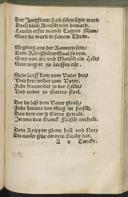 Der Jungfrawn Leib schwanger ward
Doch bleib Keuscheit rein bewart
Leucht erfür manch Tugent schon
Gott da war in seinem Thron.
Er gieng aus der Kammer sein
Dem Königlichen Saal so rein
Gott von art und Mensch ein Held
Sein weg er zu lauffen eilt.
Sein lauff kam vom Vater her
Und kert wider zum Vater.
Fuhr hinunter zu der Hell
Und wider zu Gottes stuel.
Der du bist dem Vater gleich
Führ hinaus den Sieg im Fleisch
das dein ewig Gotts gewalt
In uns das kranck Fleisch enthalt.
Dein Krippen glentzt hell und klar
Die nacht gibt ein new Liecht dar